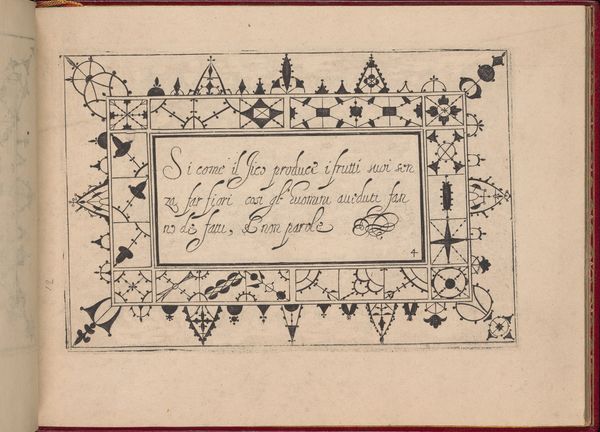 Si come il fico produce i frutti suoi sen
za far fiori cosi gli huomini aueduti fan
no de fatti, & non parole
4
12